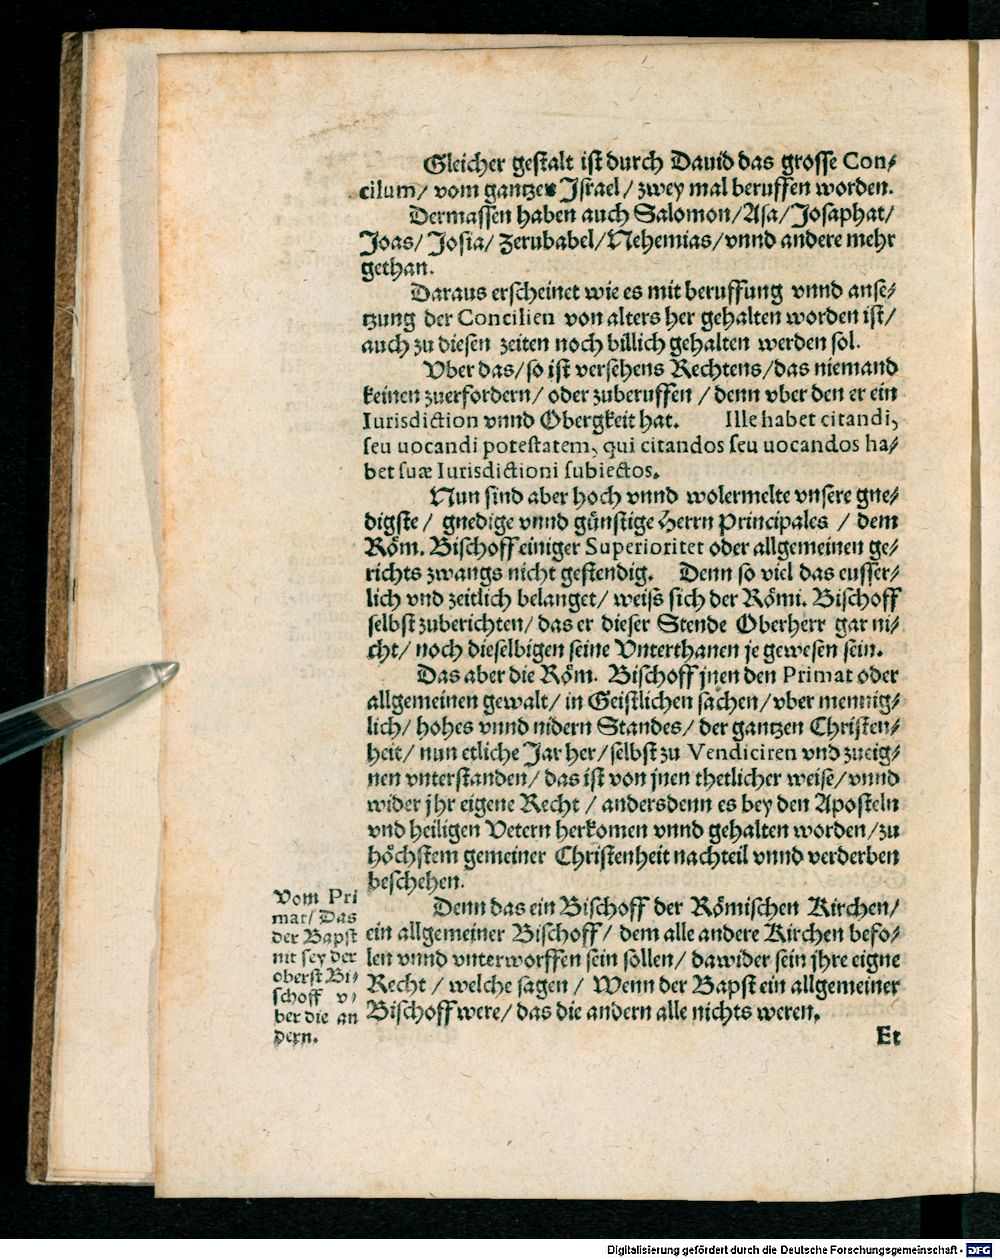 Gleicher gestalt ist durch Dauid das grosse Con-
cilum/ vom gantzen Jsrael/ zwey mal beruffen worden.
Dermassen haben auch Salomon/ Asa/ Josaphat/
Joas/ Josia/ Zerubabel/ Nehemias/ vnnd andere mehr
gethan.
Daraus erscheinet wie es mit beruffung vnnd anse-
tzung der Concilien von alters her gehalten worden ist/
auch zu diesen zeiten noch billich gehalten werden sol.
Vber das/ so ist versehens Rechtens/ das niemand
keinen zuerfordern/ oder zuberuffen/ denn vber den er ein
Iurisdiction vnnd Obergkeit hat. Ille habet citandi,
seu uocandi potestatem, qui citandos seu uocandos ha-
bet suæ Iurisdictioni subiectos.
Nun sind aber hoch vnnd wolermelte vnsere gne-
digste/ gnedige vnnd günstige Herrn Principales/ dem
Röm. Bischoff einiger Superioritet oder allgemeinen ge-
richts zwangs nicht gestendig. Denn so viel das eusser-
lich vnd zeitlich belanget/ weiß sich der Römi. Bischoff
selbst zuberichten/ das er dieser Stende Oberherr gar ni-
cht/ noch dieselbigen seine Vnterthanen je gewesen sein.
Das aber die Röm. Bischoff jnen den Primat oder
allgemeinen gewalt/ in Geistlichen sachen/ vber mennig-
lich/ hohes vnnd nidern Standes/ der gantzen Christen-
heit/ nun etliche Jar her/ selbst zu Vendiciren vnd zueig-
nen vnterstanden/ das ist von jnen thetlicher weise/ vnnd
wider jhr eigene Recht/ anders denn es bey den Aposteln
vnd heiligen Vetern herkomen vnnd gehalten worden/ zu
höchstem gemeiner Christenheit nachteil vnnd verderben
beschehen.
Denn das ein Bischoff der Römischen Kirchen/
ein allgemeiner Bischoff/ dem alle andere Kirchen befo-
len vnnd vnterworffen sein sollen/ dawider sein jhre eigne
Recht/ welche sagen/ Wenn der Bapst ein allgemeiner
Bischoff were/ das die andern alle nichts weren.
Vom Pri
mat/ Das
der Bapst
nit sey der
oberst Bi-
schoff v-
ber die an
dern.
Et
Digitalisierung gefördert durch die Deutsche Forschungsgemeinschaft - DFG